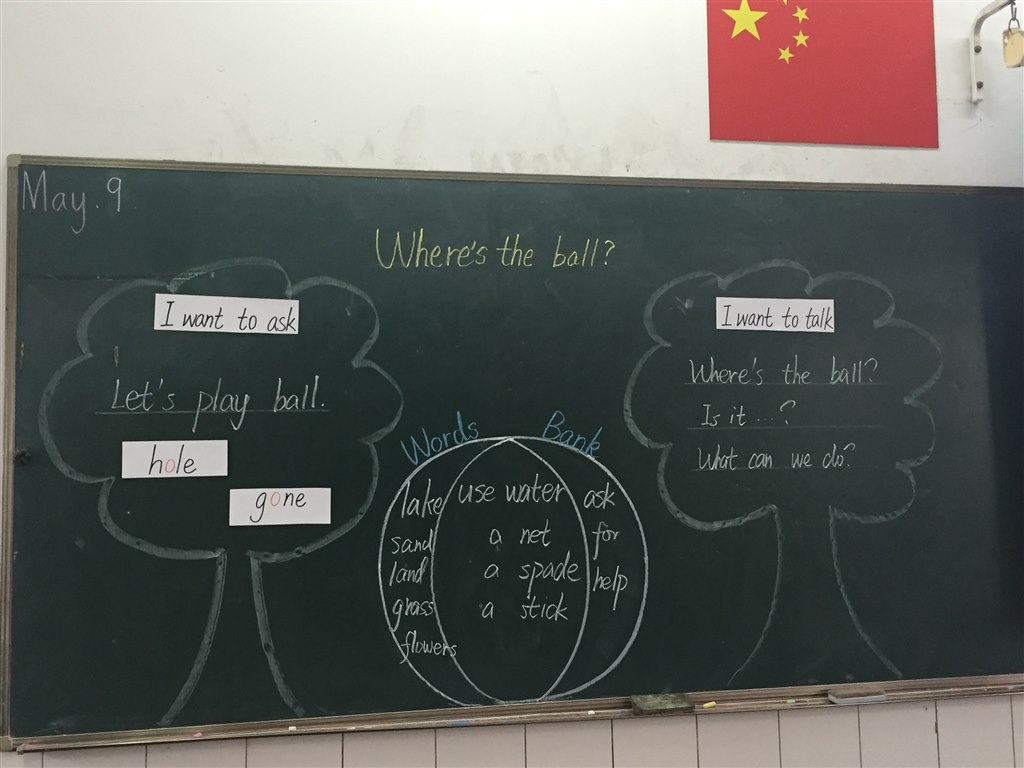 May. 9
Where's the ball?
I want to ask
Let's play ball.
hole
gone
I want to talk
Where's the ball?
Is it ...?
What can we do?
Words Bank
lake
sand
land
grass
flowers
use water
a net
a spade
a stick
ask
for
help